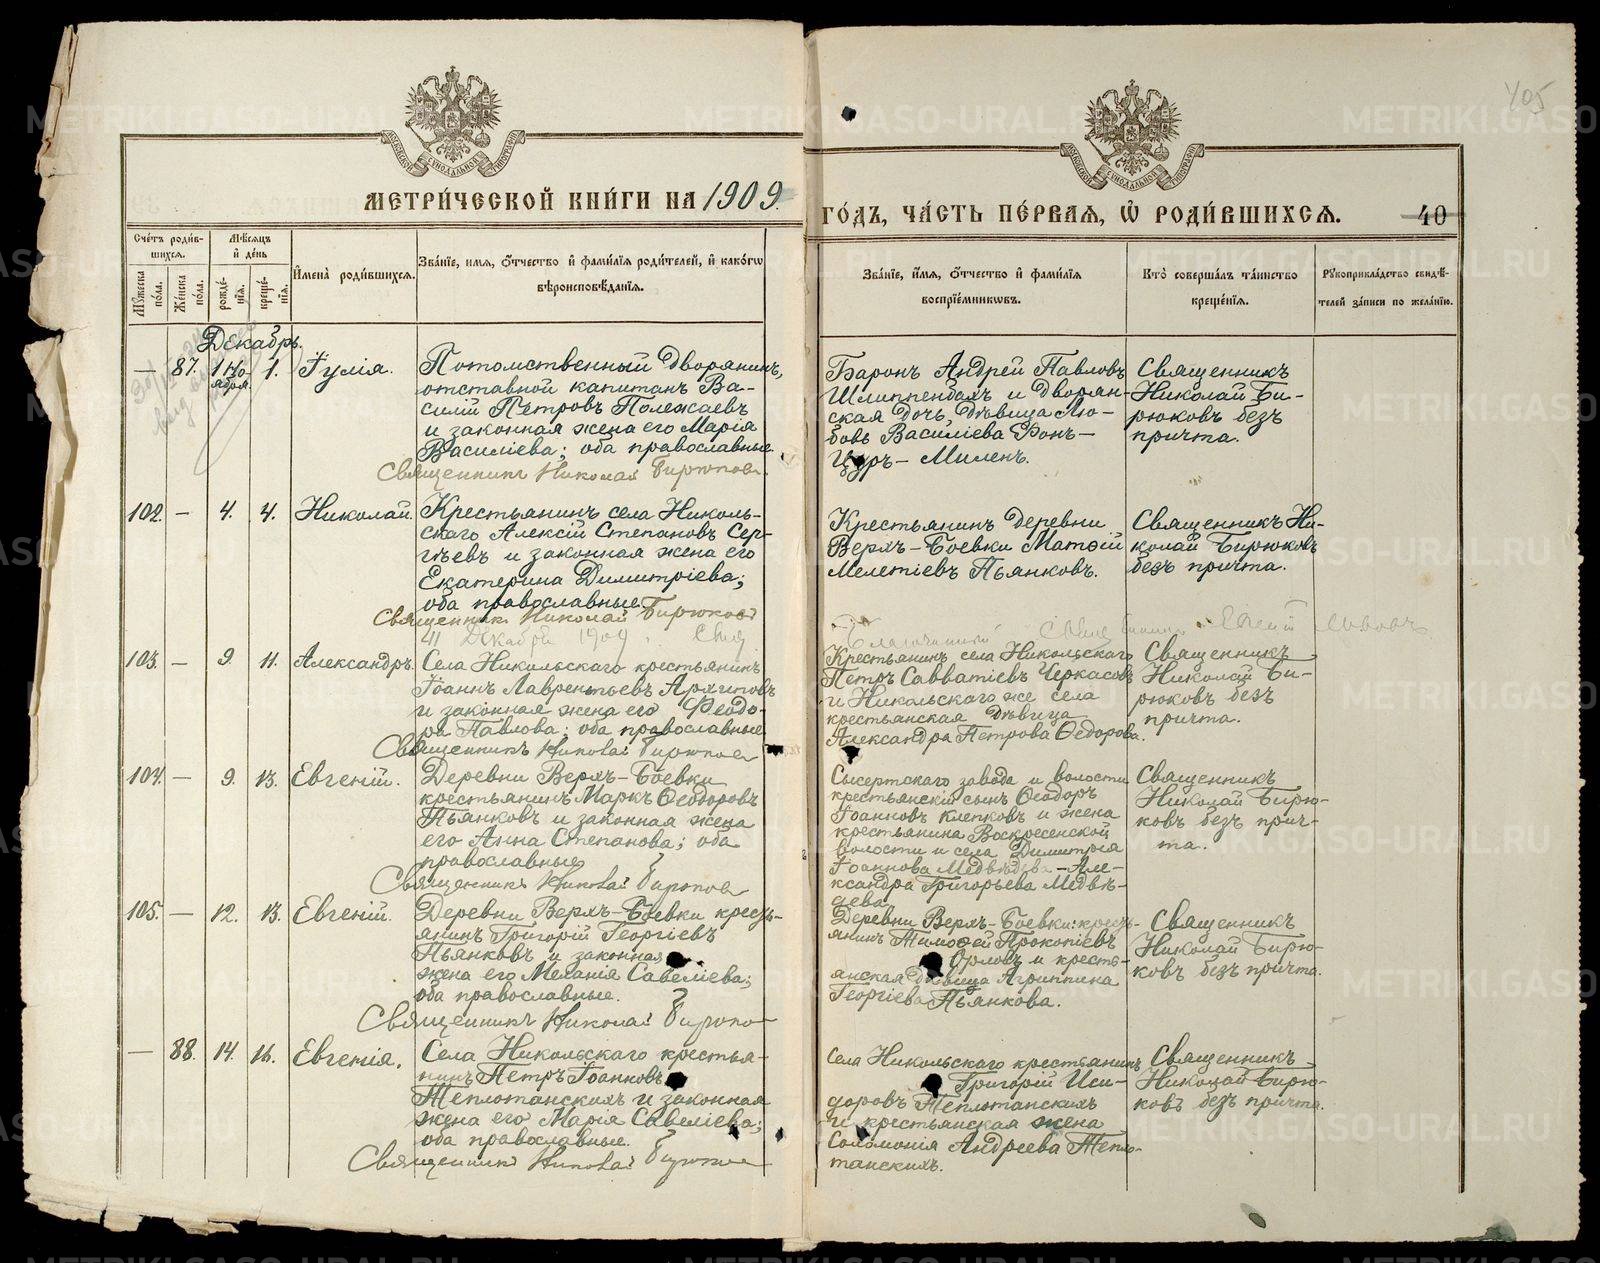 405
МЕТРИ́ЧЕСКОЙ КНИ́ГИ НА 1909.
ГО́ДЪ, ЧА́СТЬ ПЕ́РВАЯ, Ѡ҆ РОДИ́ВШИХСЯ.
40
Счетъ роди́в-
шихся.
Мѣсяцъ
и҆ де́нь
Мꙋжеска
по́ла.
Же́нска
по́ла.
рожде́-
нїя.
креще́-
нїя.
И҆мена̀ роди́вшихся.
Зва́нїе, имя, ѻ҆́тчество и҆ фами́лїя роди́телей, и҆ како́гѡ
вѣроисповѣ́данїя.
Зва́нїе, и҆́мя, ѻ҆́тчество и҆ фами́лїя
воспрїе́мникѡвъ.
Кто̀ соверша́лъ та́инство
креще́нїя.
Рꙋкоприкла́дство свидѣ́-
телей за́писи по жела́нїю.
Декабрь.
— 87. 1 Но-
ября. 1. Іулія.
Потомственный Дворянинъ,
отставной капитанъ Ва-
силій Петровъ Полежаевъ
и законная жена его Марія
Василіева; оба православные
Священникъ Николай Бирюковъ.
Баронъ Андрей Павловъ
Шлиппенбахъ и Дворян-
ская дочь дѣвица Лю-
бовь Василіева Фонъ-
Цуръ-Миленъ.
Священникъ
Николай Би-
рюковъ безъ
причта.
102. — 4. 4. Николай.
Крестьянинъ села Николь-
скаго Алексій Степановъ Сер-
гѣевъ и законная жена его
Екатерина Димитріева;
оба православные.
Священникъ Николай Бирюковъ
Крестьянинъ деревни
Верхъ-Боевки Матѳій
Мелетіевъ Пьянковъ.
Священникъ Ни-
колай Бирюковъ
безъ причта.
11 Декабря 1909.
Благочинный Священникъ
103. — 9. 11. Александръ.
Села Никольскаго крестьянинъ
Іоаннъ Лаврентьевъ Архиповъ
и законная жена его Ѳеодо-
ра Павлова; оба православные
Священникъ Николай Бирюков
Крестьянинъ села Никольскаго
Петръ Савватіевъ Черкасовъ
и Никольскаго же села
крестьянская дѣвица
Александра Петрова Ѳедорова.
Священникъ
Николай Би-
рюковъ безъ
причта.
104. — 9. 13. Евгеній.
Деревни Верхъ-Боевки
крестьянинъ Маркъ Ѳеодоровъ
Пьянковъ и законная жена
его Анна Степанова; оба
православные
Священникъ Николай Бирюков
Сысертскаго завода и волости
крестьянскій сынъ Ѳеодоръ
Іоанновъ Клепковъ и жена
крестьянина Воскресенской
волости и села Димитрія
Іоаннова Медвѣдева-Але-
ксандра Григорьева Медвѣ-
дева
Священникъ
Николай Бирю-
ковъ безъ прич-
та.
105. — 12. 13. Евгеній.
Деревни Верхъ-Боевки кресть-
янинъ Григорій Георгіевъ
Пьянковъ и законная
жена его Меланія Савеліева;
оба православные.
Священникъ Николай Бирюко
Деревни Верхъ-Боевки: кресть-
янинъ Тимоѳей Прокопіевъ
Орловъ и кресть-
янская дѣвица Агриппина
Георгіева Пьянкова.
Священникъ
Николай Бирю-
ковъ безъ причта.
— 88. 14. 16. Евгенія.
Села Никольскаго крестья-
нинъ Петръ Іоанновъ
Теплотанскихъ и законная
жена его Марія Савеліева;
оба православные.
Священникъ Николай Бирюков
Села Никольскаго крестьянинъ
Григорій Иси-
доровъ Теплотанскихъ
и крестьянская жена
Соломонія Андреева Тепло-
танскихъ.
Священникъ
Николай Бирю-
ковъ безъ причта.
METRIKI.GASO-URAL.RU